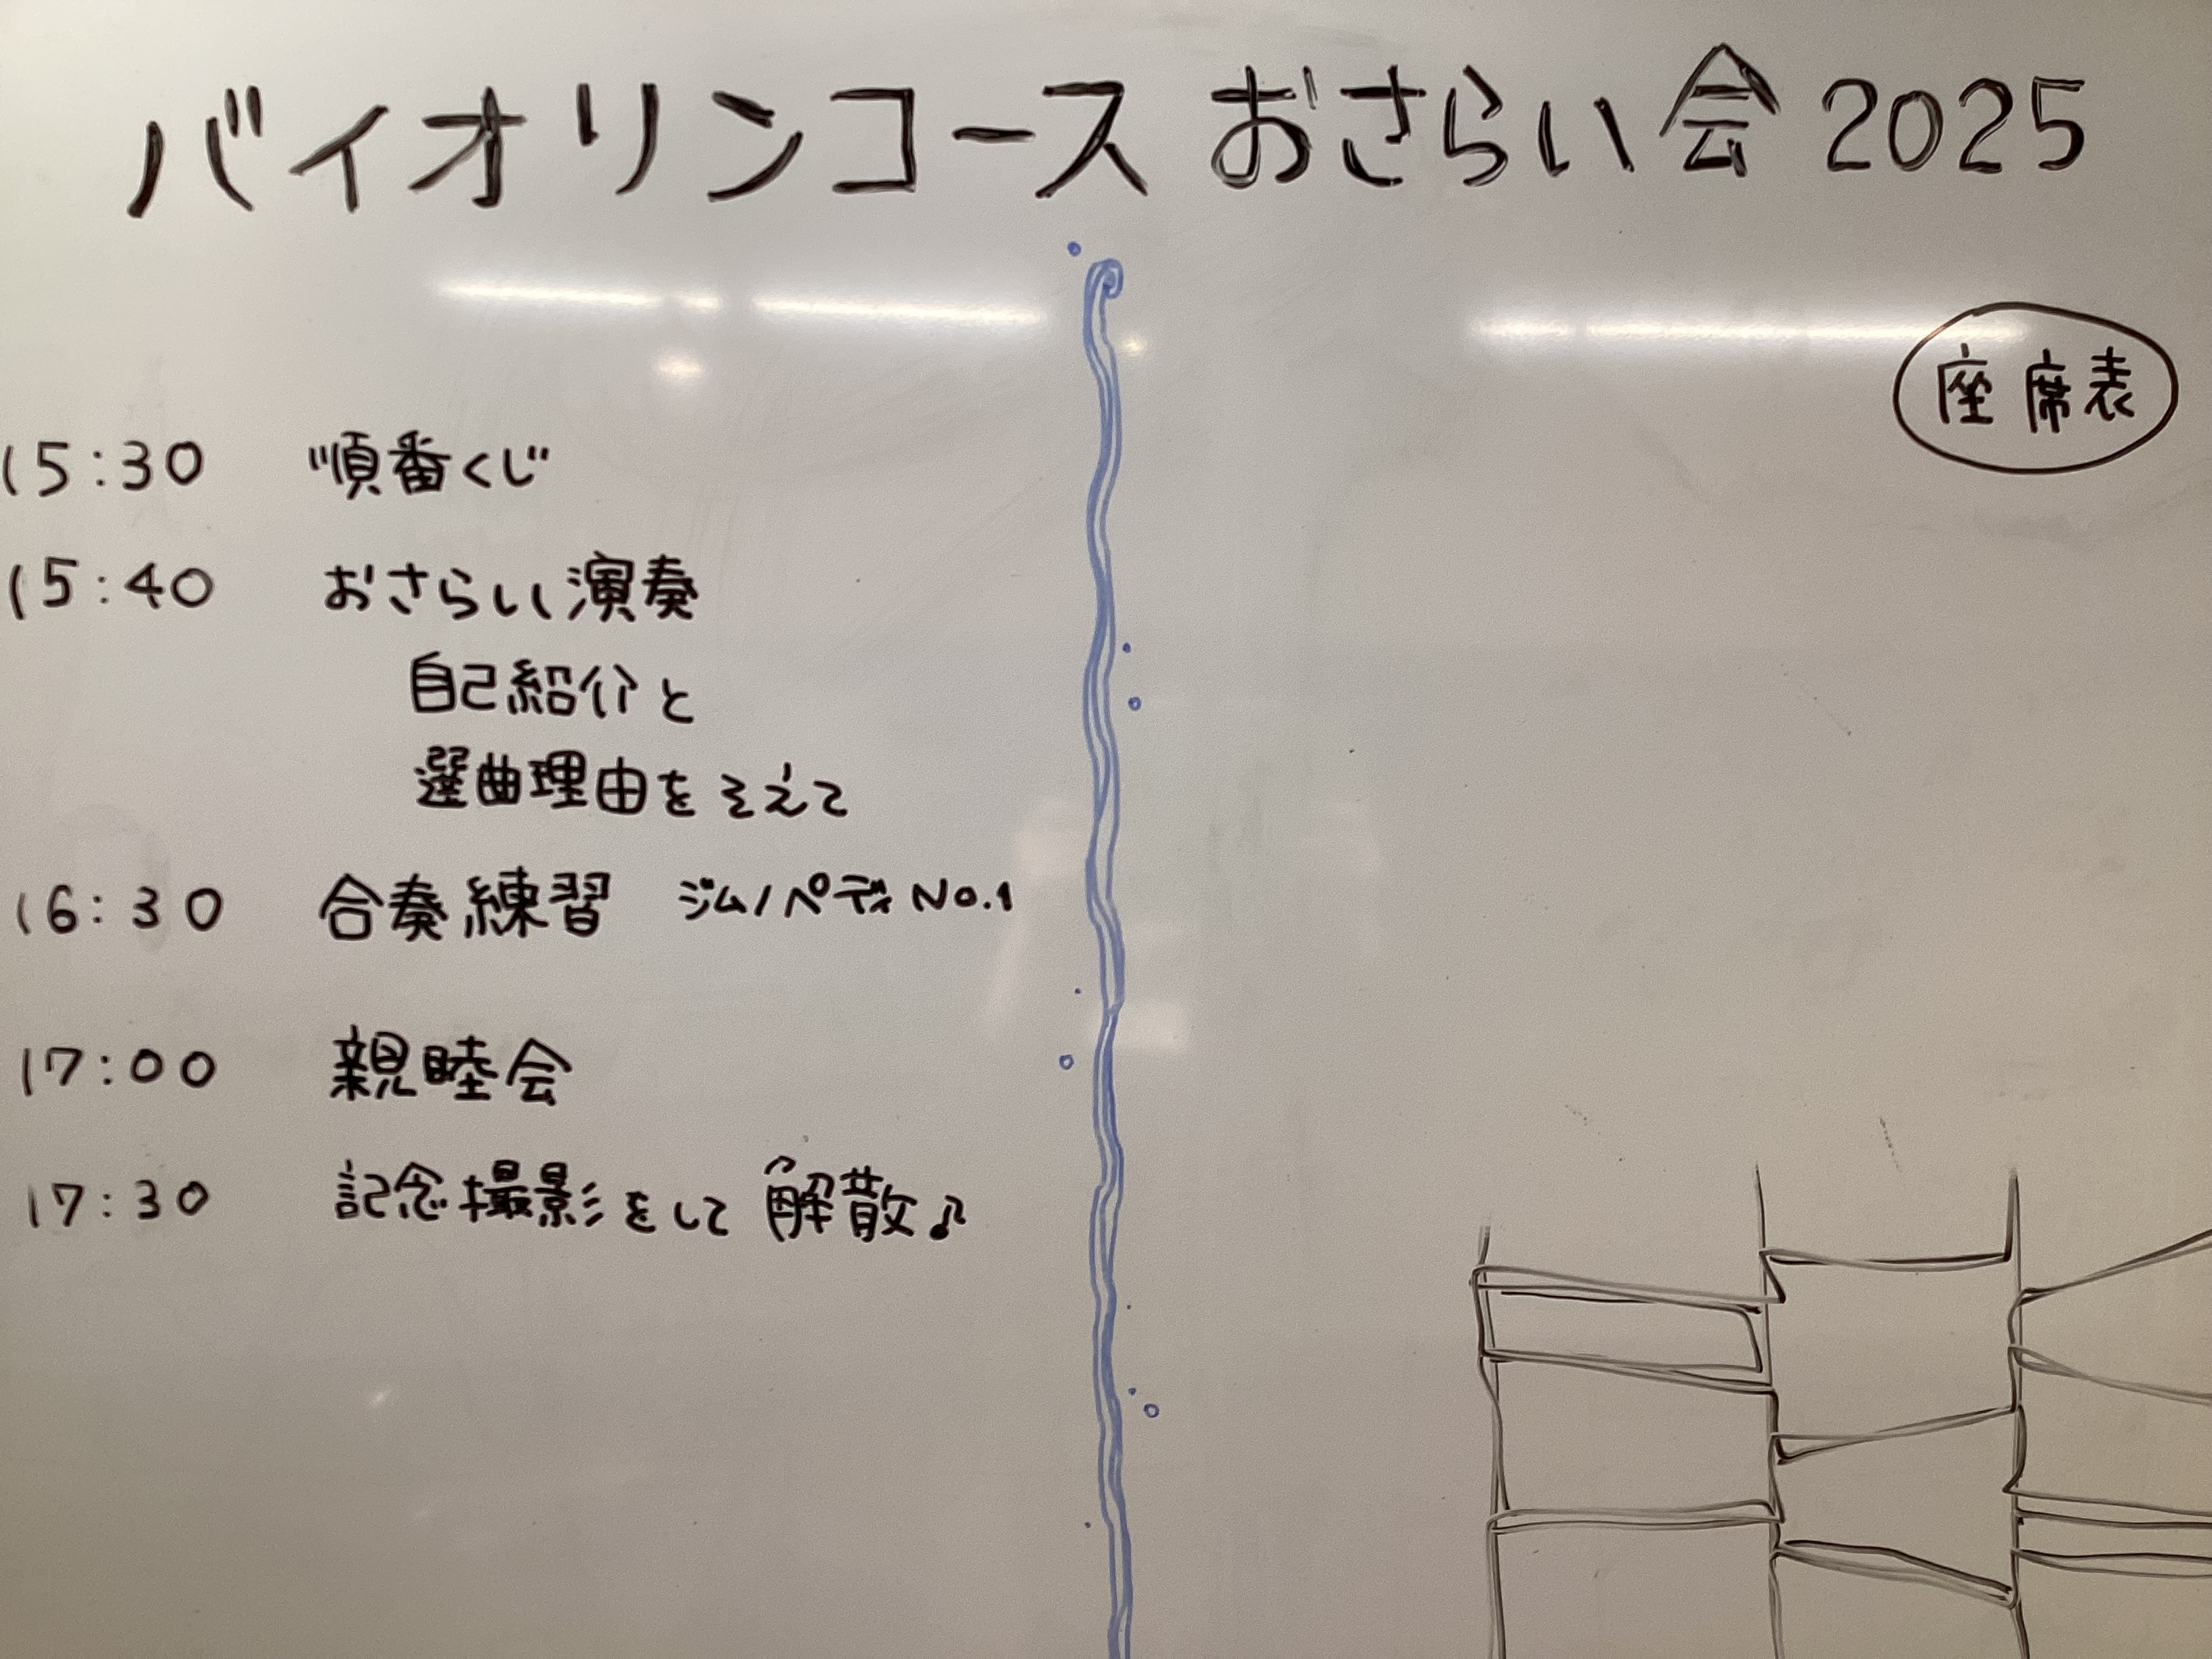 バイオリンコース おさらい会 2025
15:30 順番くじ
15:40 おさらい演奏
自己紹介と
選曲理由をそえて
16:30 合奏練習 ジムノペディ No.1
17:00 親睦会
17:30 記念撮影をして 解散♪
座席表